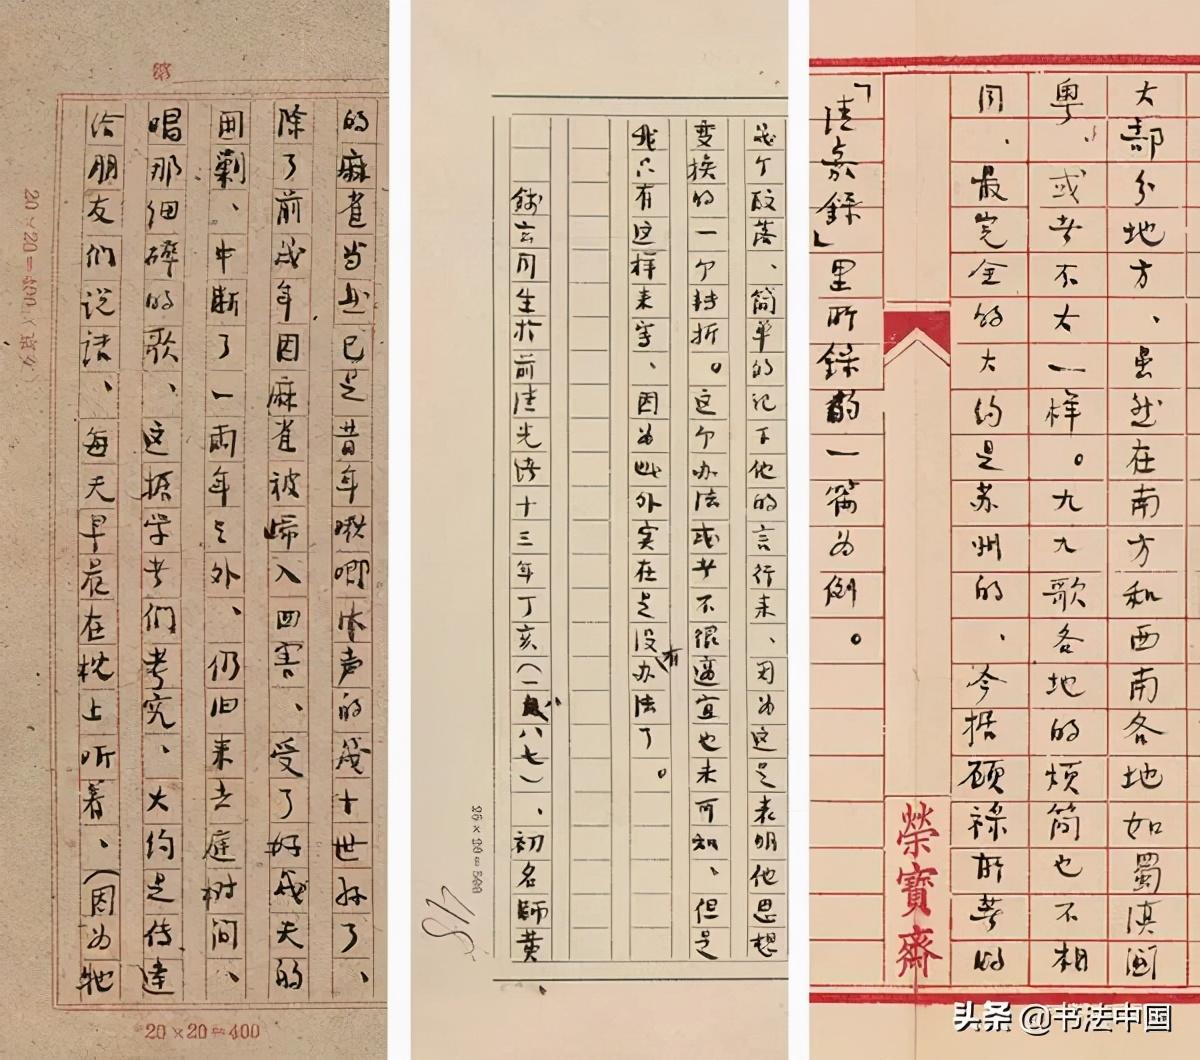 第
的麻雀当然已是昔年啾唧作声的几十世孙了、
除了前几年因麻雀被归入四害、受了好几天的
围剿、中断了一两年之外、仍旧来去庭树间、
唱那细碎的歌、这据学者们考究、大约是传达
给朋友们说话、每天早晨在枕上听着、(因为牠
20×20=400
20×20=400
几个段落、简单的记下他的言行来、因为这是表明他思想
变换的一个转折。这个办法或者不很适宜也未可知、但是
我只有这样来写、因为此外实在是没有办法了。
钱玄同生於前清光绪十三年丁亥(一八八七)、初名师黄
25×20=500
48
大部分地方、虽然在南方和西南各地如蜀滇闽
粤、或者不大一样。九九歌各地的烦简也不相
同、最完全的大约是苏州的、今据顾禄所著的
榮寶齋
「清嘉録」里所録的一篇为例。
头条 @书法中国